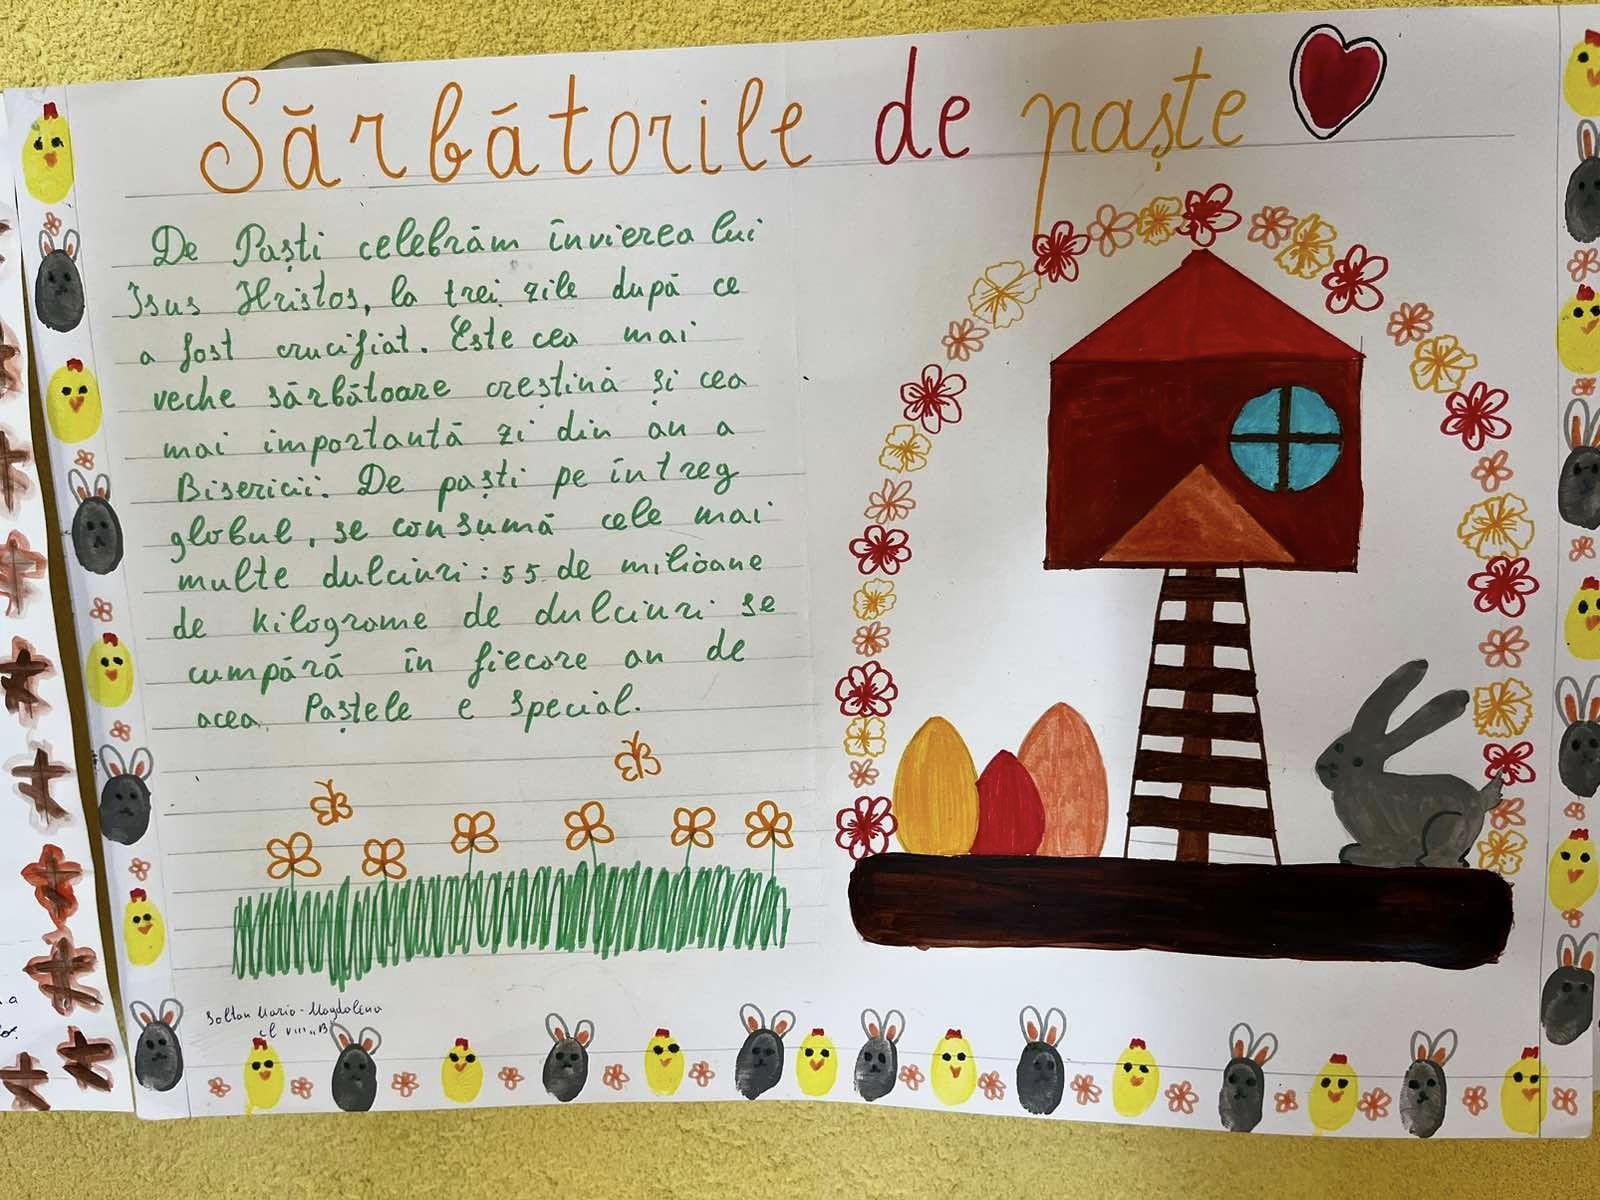 Sărbătorile de paște
De Paști celebrăm învierea lui
Isus Hristos, la trei zile după ce
a fost crucifiat. Este cea mai
veche sărbătoare creștină și cea
mai importantă zi din an a
Bisericii. De paști pe întreg
globul, se consumă cele mai
multe dulciuri: 55 de milioane
de kilograme de dulciuri se
cumpără în fiecare an de
acea Paștele e special.
Soltan Maria-Magdalena
cl VIII „B"